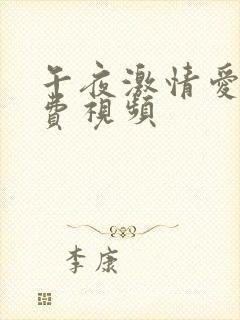 午夜激情愛
費視頻
李康